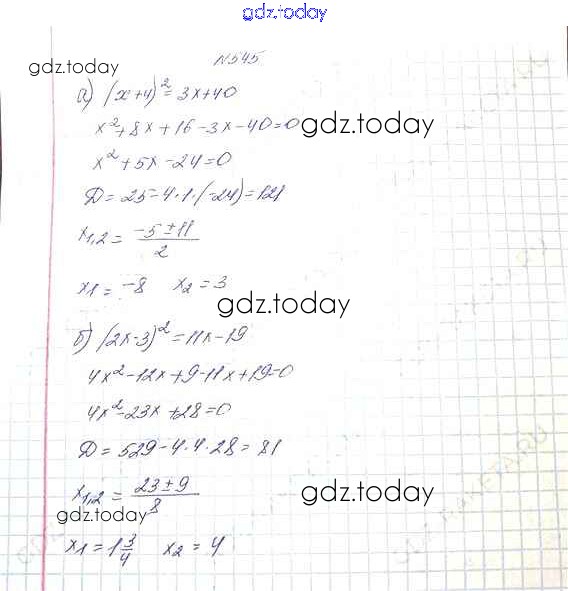 gdz.today
N545
gdz.today
а) (x+4)² = 3x+40
x²+8x+16-3x-40=0 gdz.today
x²+5x-24=0
Д=25-4·1·(-24)=121
x1,2 = (-5±11)/2
x1=-8 x2=3
gdz.today
б) (2x-3)²=11x-19
4x²-12x+9-11x+19=0
4x²-23x+28=0
Д=529-4·4·28=81
x1,2 = (23±9)/8
gdz.today
gdz.today
x1=1 3/4 x2=4